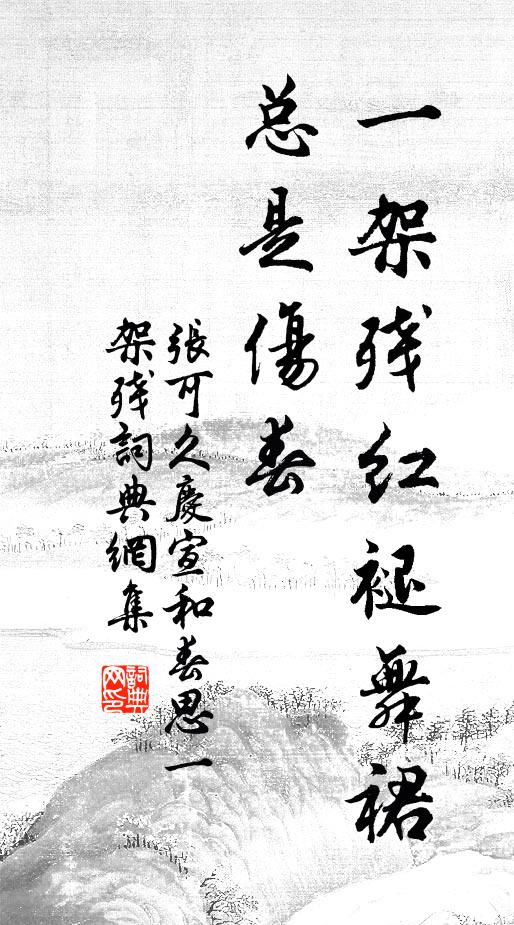 一架残红褪舞裙
总是傷春
張可久慶宣和春思一
架残詞典網集
詞典网印